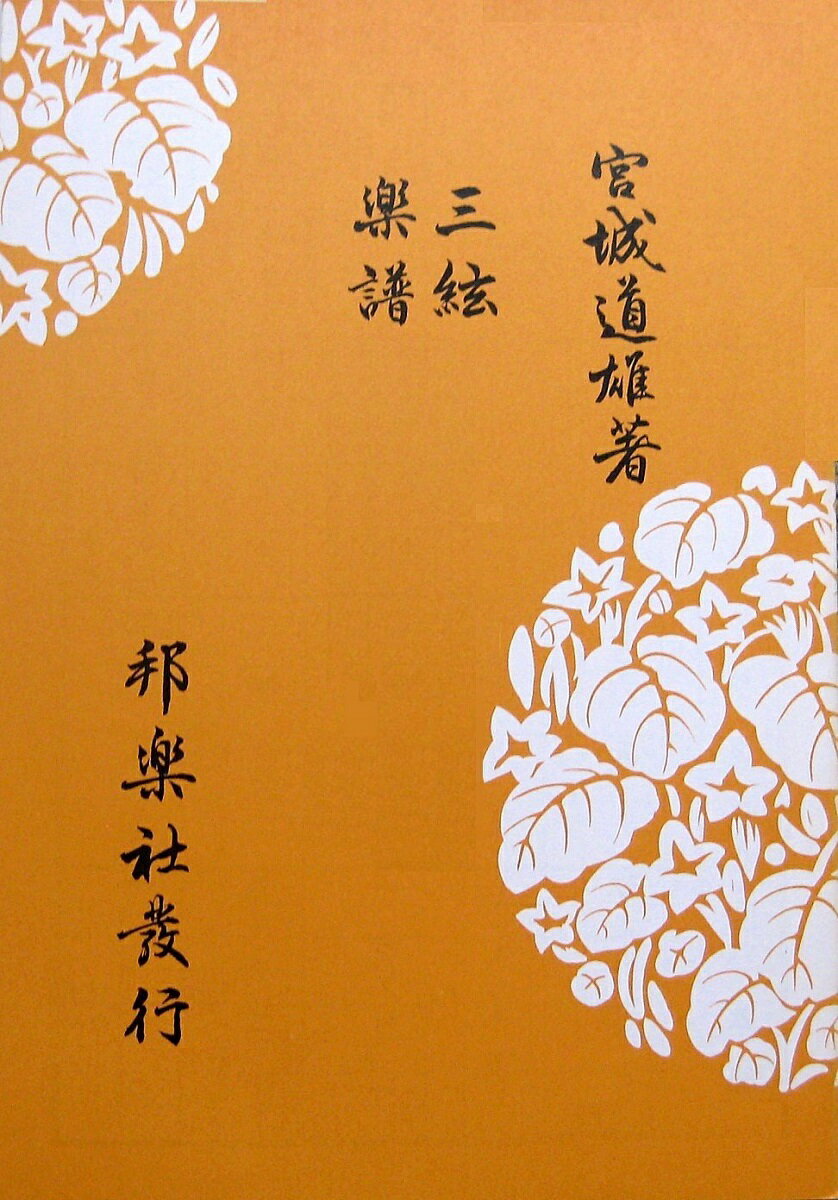 宮城道雄著
三絃
楽譜
邦楽社發行